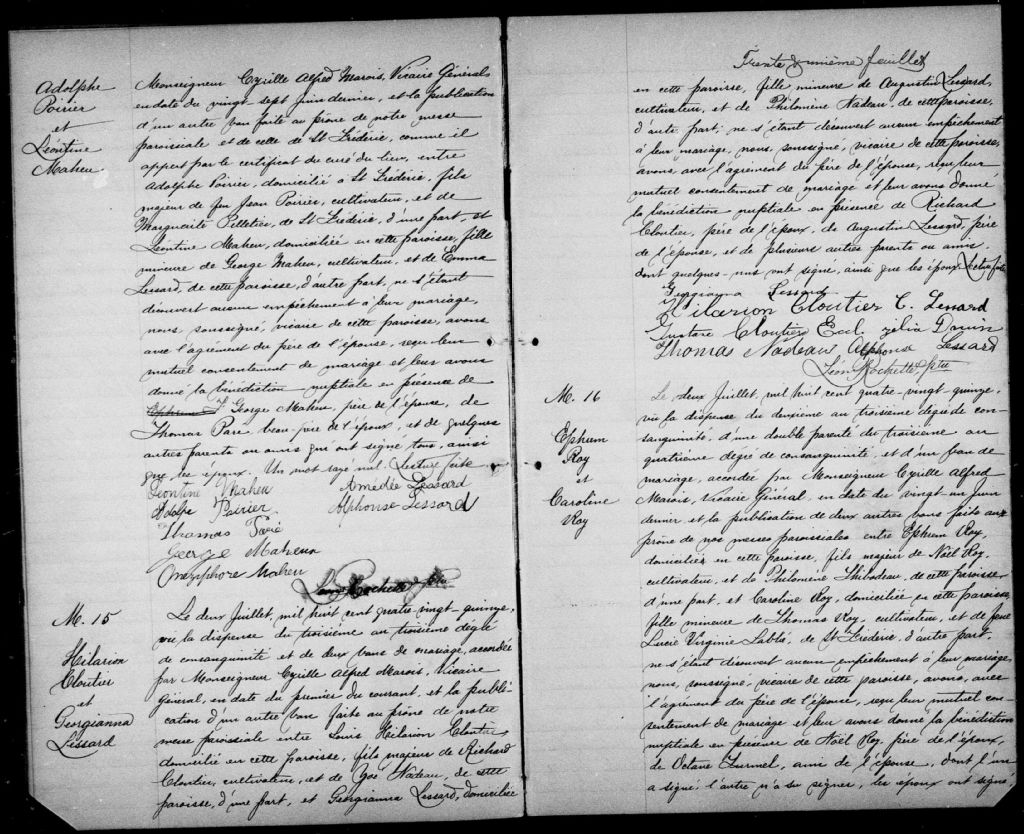 Adolphe
Poirier
et
Léontine
Maheu
Monseigneur Cyrille Alfred Marois, Vicaire Général
en date du vingt sept juin dernier, et la publication
d'un autre ban faite au prône de notre messe
paroissiale et de celle de St Frédéric, comme il
appert par le certificat du curé du lieu, entre
Adolphe Poirier, domicilié à St Frédéric, fils
majeur de feu Jean Poirier, cultivateur, et de
Marguerite Pelletier, de St Frédéric, d'une part, et
Léontine Maheu, domiciliée en cette paroisse, fille
mineure de George Maheu, cultivateur, et de Emma
Lessard, de cette paroisse, d'autre part, ne s'étant
découvert aucun empêchement à leur mariage,
nous soussigné, vicaire de cette paroisse, avons
avec l'agrément du père de l'épouse, reçu leur
mutuel consentement de mariage et leur avons
donné la bénédiction nuptiale en présence de
George Maheu, père de l'épouse, de
Thomas Paré beau-père de l'époux, et de quelques
autres parents ou amis qui ont signé tous, ainsi
que les époux. Un mot rayé nul. Lecture faite
Leontine Maheu Amedée Lessard
Adolpe Poirier Alphonse Lessard
Thomas Paré
George Maheux
Oneziphore Maheu
Leon Rochette Ptre
M. 15
Hilarion
Cloutier
et
Georgianna
Lessard
Le deux Juillet, mil huit cent quatre-vingt-quinze,
vu la dispense du troisième au troisième degré
de consanguinité et de deux bans de mariage, accordée
par Monseigneur Cyrille Alfred Marois, Vicaire
Général, en date du premier du courant, et la publi-
cation d'un autre ban faite au prône de notre
messe paroissiale entre Louis Hilarion Cloutier
domicilié en cette paroisse, fils majeur de Richard
Cloutier, cultivateur, et de Zoé Nadeau, de cette
paroisse, d'une part, et Georgianna Lessard, domiciliée
Trente & unième feuillet
en cette paroisse, fille mineure de Augustin Lessard,
cultivateur, et de Philomène Nadeau, de cette paroisse,
d'autre part; ne s'étant découvert aucun empêchement
à leur mariage, nous, soussigné, vicaire de cette paroisse,
avons, avec l'agrément du père de l'épouse, reçu leur
mutuel consentement de mariage et leur avons donné
la bénédiction nuptiale en présence de Richard
Cloutier, père de l'époux, de Augustin Lessard, père
de l'épouse, et de plusieurs autres parents ou amis.
dont quelques-uns ont signé, ainsi que les époux. Lecture faite
Georgianna Lessard
Hilarion Cloutier C. Lessard
Gustave Cloutier Eccl. Zelia Drouin
Thomas Nadeau Alphonse Lessard
Leon Rochette Ptre
M. 16
Ephrem
Roy
et
Caroline
Roy
Le deux Juillet, mil huit cent quatre-vingt-quinze,
vu la dispense du deuxième au troisième degré de con-
sanguinité, d'une double parenté du troisième au
quatrième degré de consanguinité, et d'un ban de
mariage, accordée par Monseigneur Cyrille Alfred
Marois, Vicaire Général, en date du vingt-un juin
dernier et la publication de deux autres bans faite aux
prône de nos messes paroissiales entre Ephrem Roy,
domicilié en cette paroisse, fils majeur de Noël Roy,
cultivateur, et de Philomène Thibodeau, de cette paroisse
d'une part, et Caroline Roy, domiciliée en cette paroisse
fille mineure de Thomas Roy, cultivateur, et de feue
Lucie Virginie Labbé, de St Frédéric, d'autre part.
ne s'étant découvert aucun empêchement à leur mariage,
nous, soussigné, vicaire de cette paroisse, avons, avec
l'agrément du père de l'épouse, reçu leur mutuel con-
sentement de mariage et leur avons donné la bénédiction
nuptiale en présence de Noël Roy, père de l'époux,
de Octave Turmel, ami de l'épouse, dont l'un
a signé, l'autre n'a su signer, les époux ont signé.